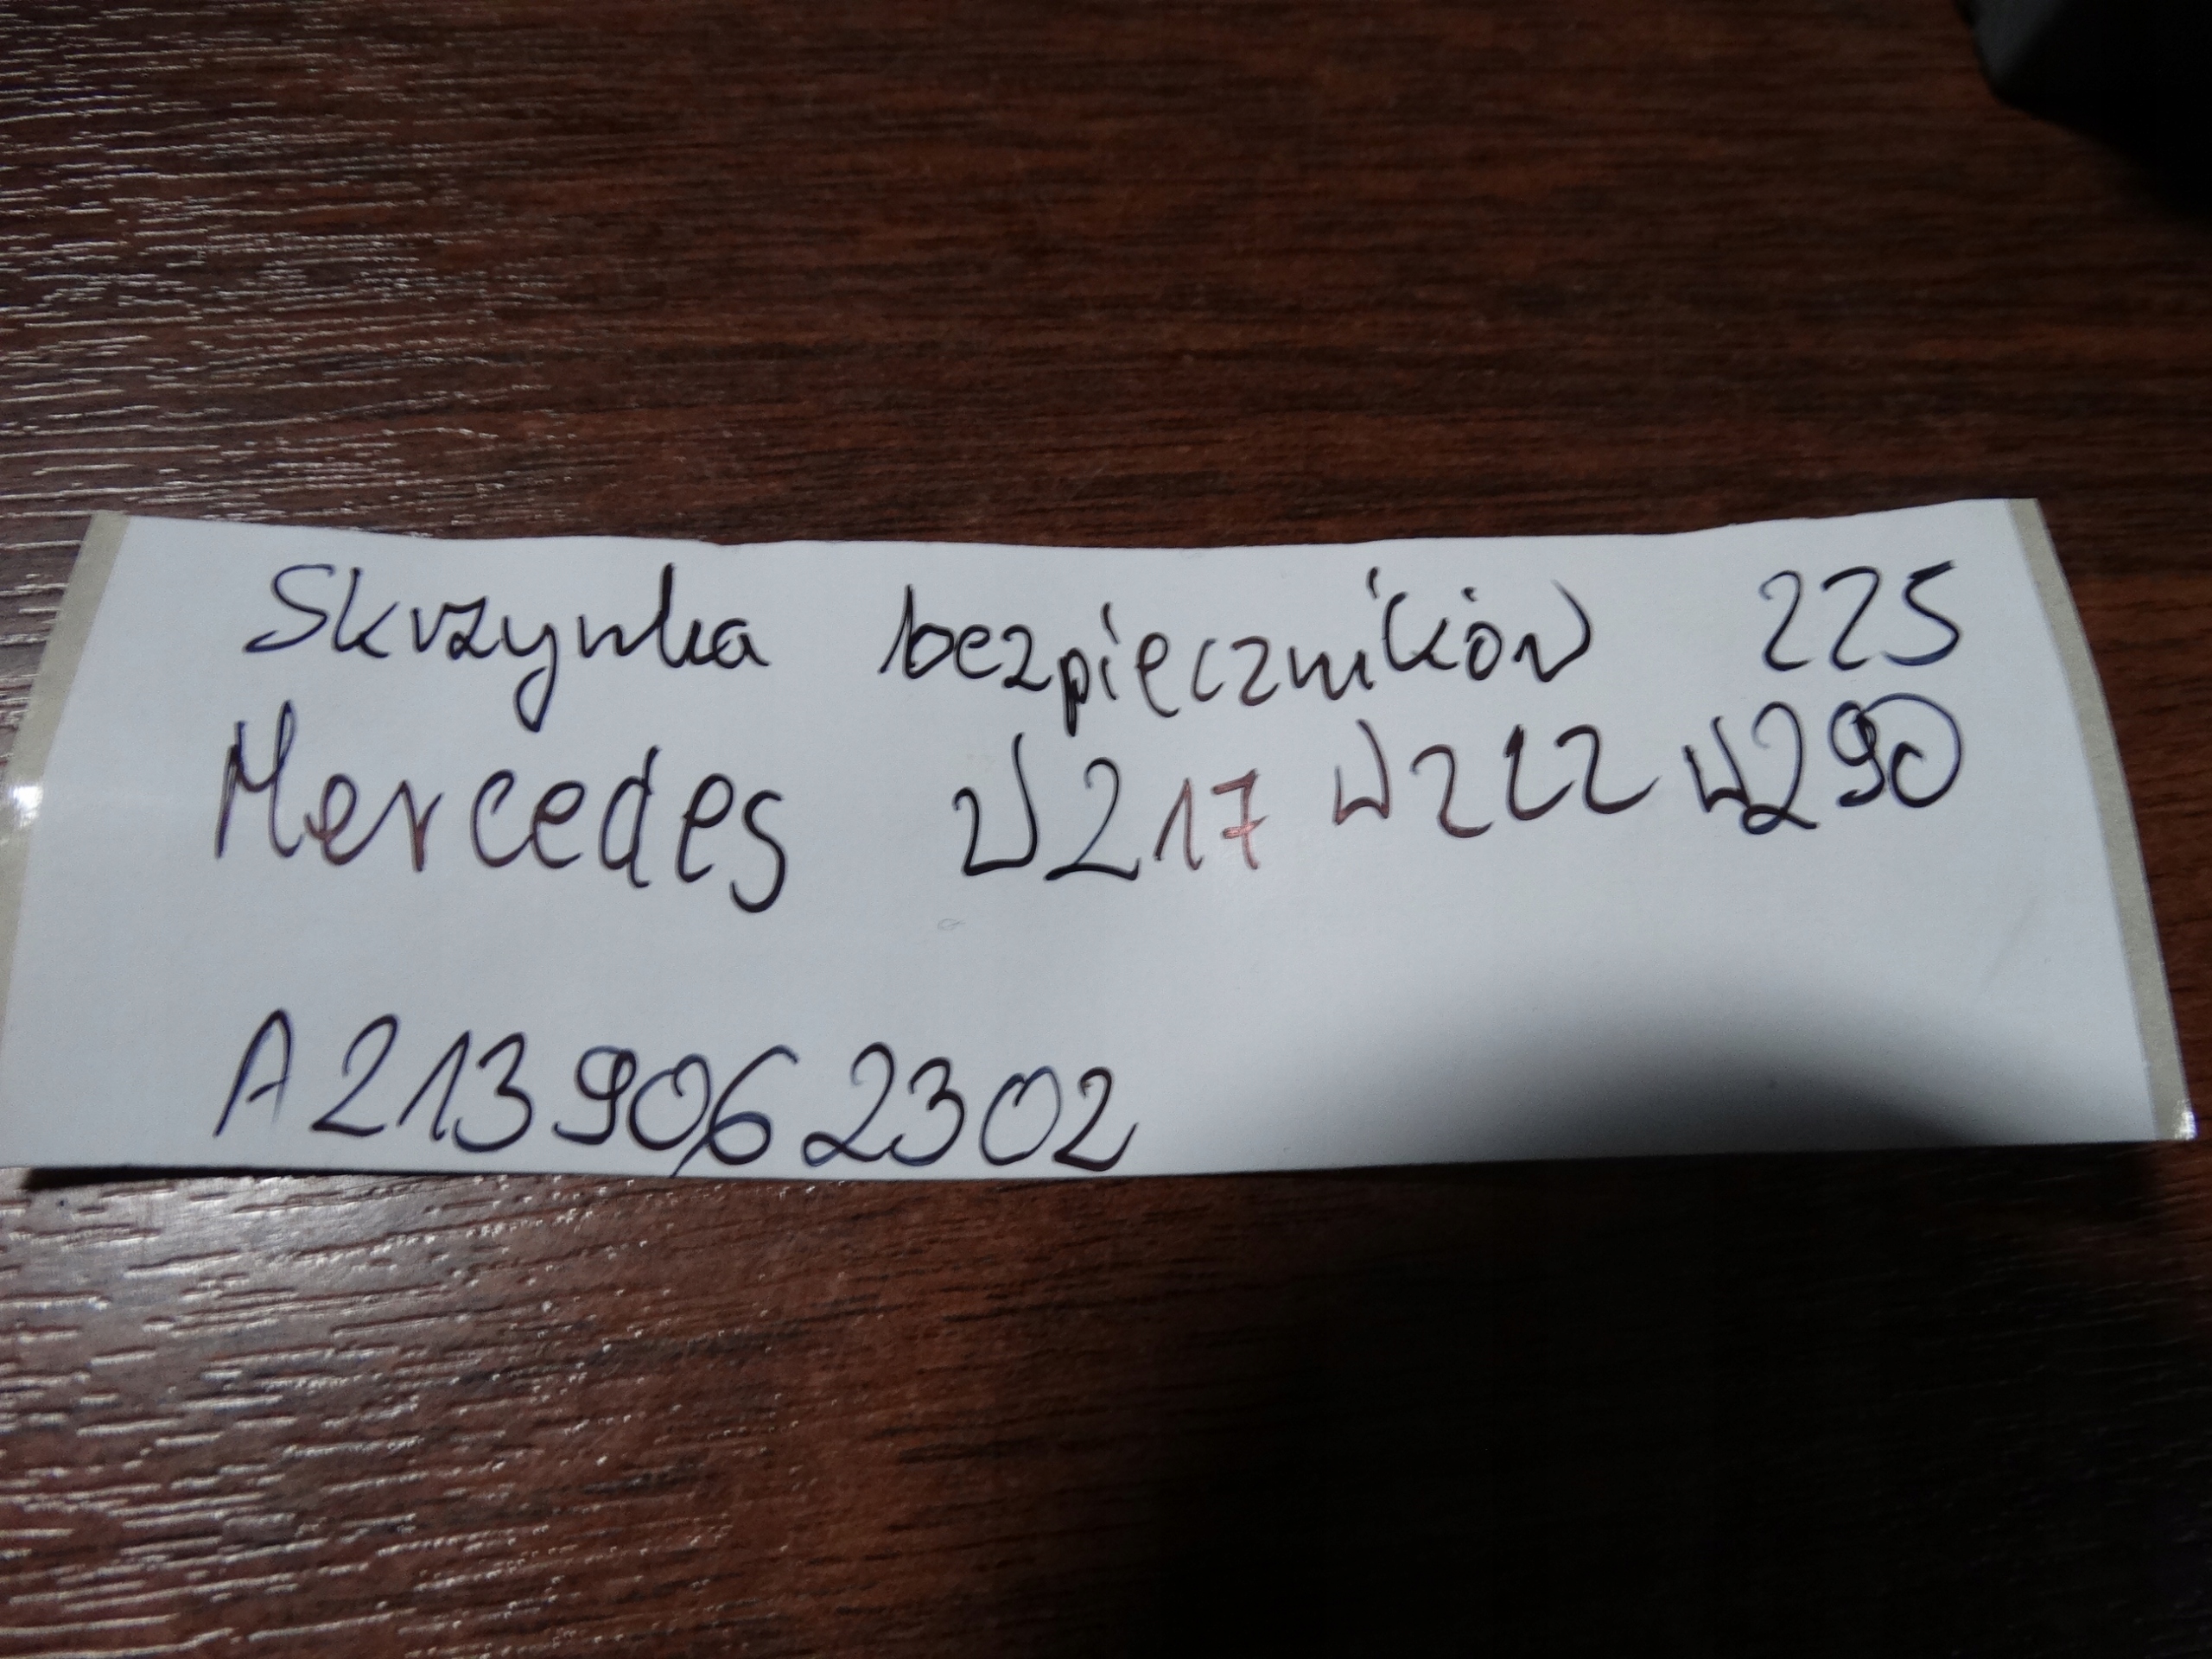 Skrzynka bezpieczników 225
Mercedes W217 W222 W290
A2139062302